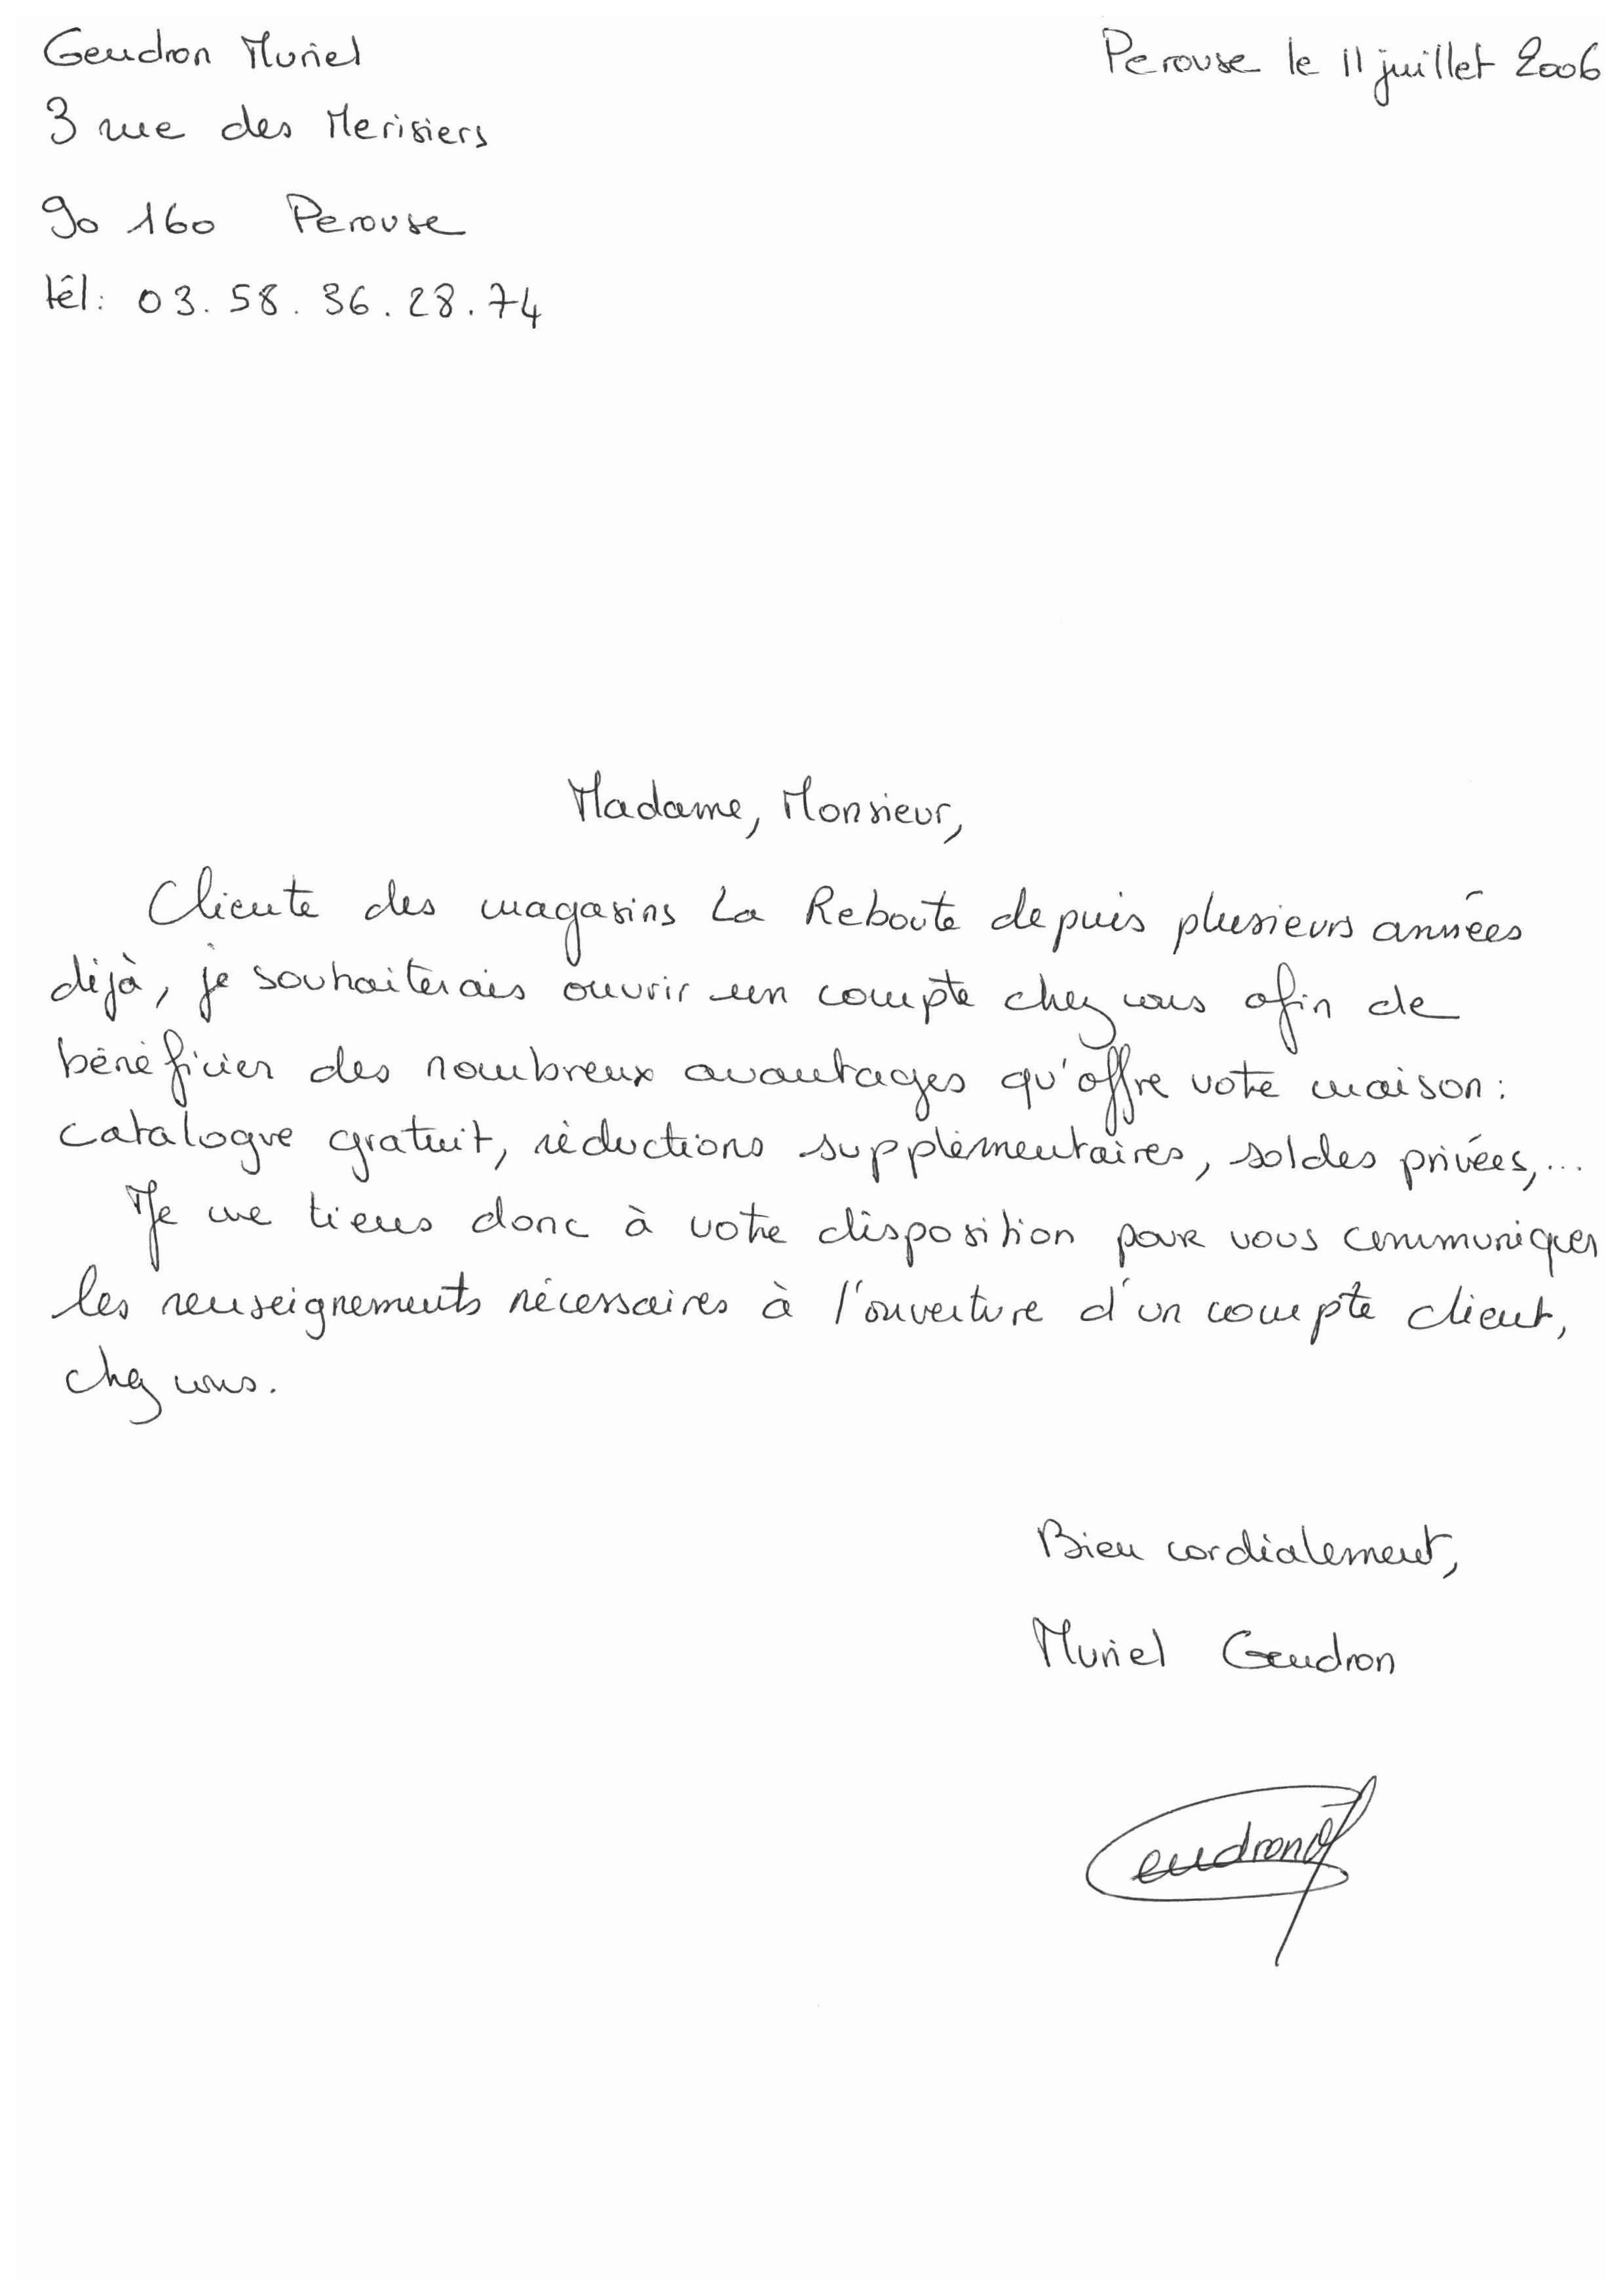 Gendron Muriel
Perouse le 11 juillet 2006
3 rue des Merisiers
90 160 Perouse
tél: 03.58.36.28.74
Madame, Monsieur,
Cliente des magasins La Reboute depuis plusieurs années
déjà, je souhaiterais ouvrir un compte chez vous afin de
bénéficier des nombreux avantages qu'offre votre maison:
catalogue gratuit, réductions supplémentaires, soldes privées,...
Je me tiens donc à votre disposition pour vous communiquer
les renseignements nécessaires à l'ouverture d'un compte client,
chez vous.
Bien cordialement,
Muriel Gendron
Gendron